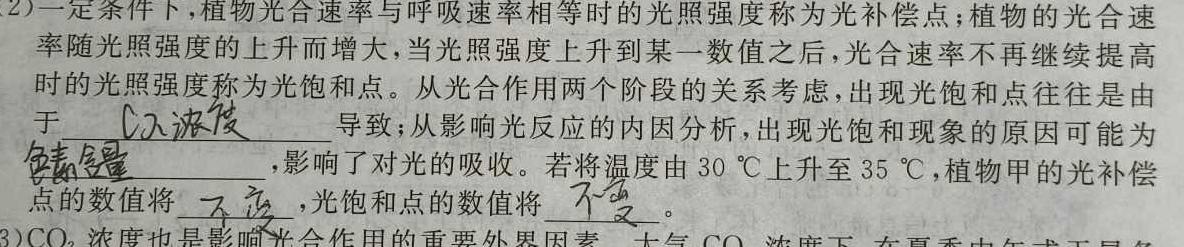 (2)一定条件下,植物光合速率与呼吸速率相等时的光照强度称为光补偿点;植物的光合速
率随光照强度的上升而增大,当光照强度上升到某一数值之后,光合速率不再继续提高
时的光照强度称为光饱和点。从光合作用两个阶段的关系考虑,出现光饱和点往往是由
于 CO₂浓度 导致;从影响光反应的内因分析,出现光饱和现象的原因可能为
色素含量 ,影响了对光的吸收。若将温度由 30 ℃上升至 35 ℃,植物甲的光补偿
点的数值将 不变 ,光饱和点的数值将 不变 。
3)CO₂ 浓度也是影响光合作用的重要外界因素